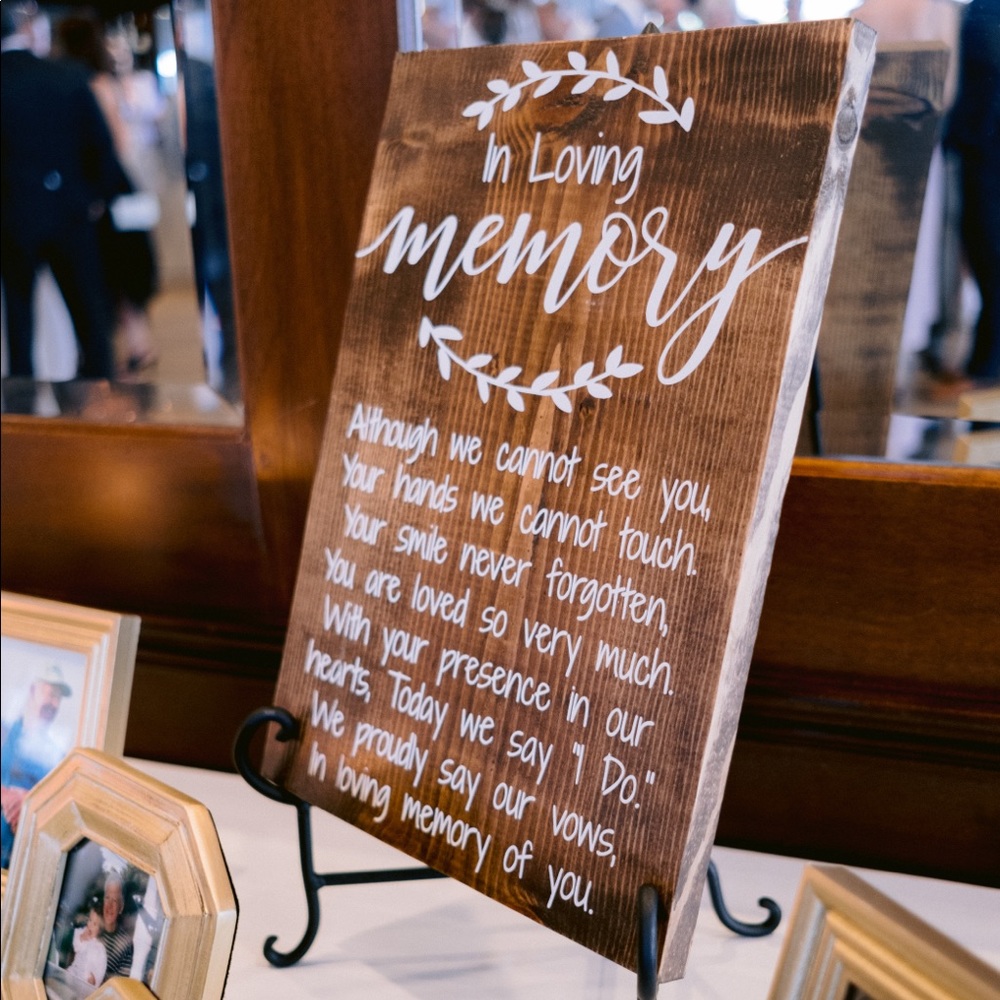 In Loving
memory
Although we cannot see you,
Your hands we cannot touch.
Your smile never forgotten,
You are loved so very much.
With your presence in our
hearts, Today we say "I Do."
We proudly say our vows,
In loving memory of you.